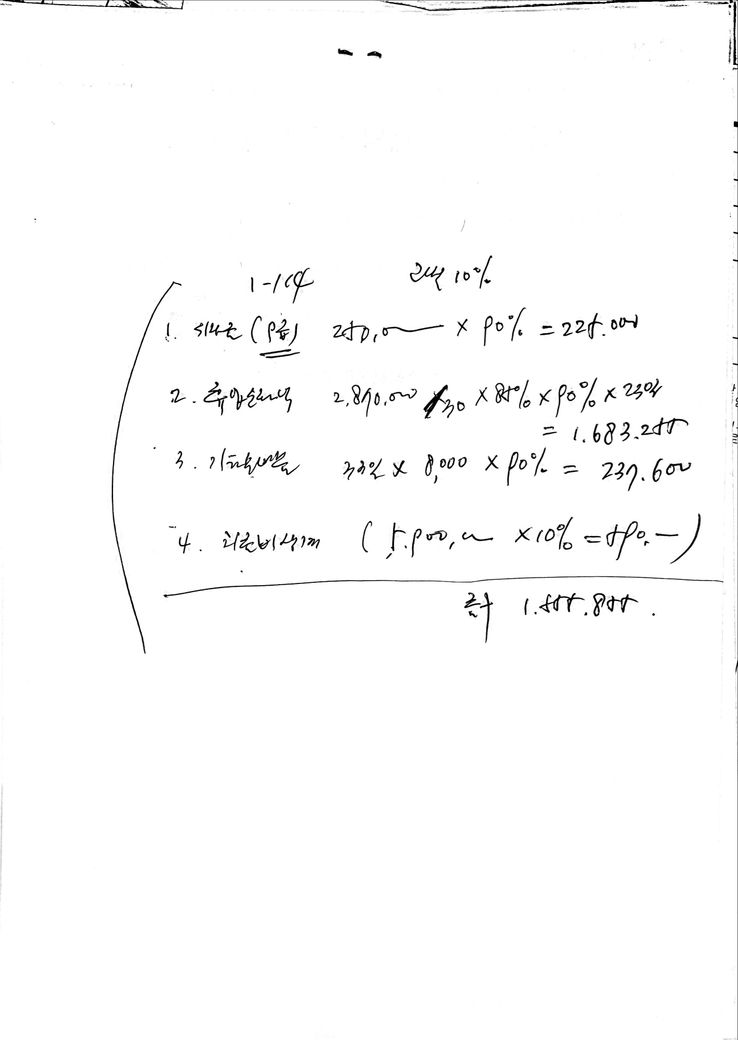 1-1안 과실 10%
1. 위자료 (9급) 250,0— × 90% = 225.000
2. 휴업손해액 2,870,000 /30 × 85% × 90% × 23일
= 1.683.255
3. 기타손배금 33일 × 8,000 × 90% = 237.600
4. 치료비상계 ( 5.900,0— × 10% = 590.—)
합계 1.555.855.